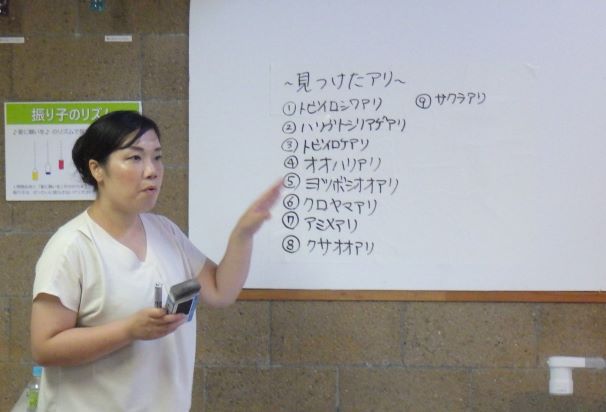 振り子のリズム
～見つけたアリ～
①トビイロシワアリ
②ハリブトシリアゲアリ
③トビイロケアリ
④オオハリアリ
⑤ヨツボシオオアリ
⑥クロヤマアリ
⑦アミメアリ
⑧クサオオアリ
⑨サクラアリ